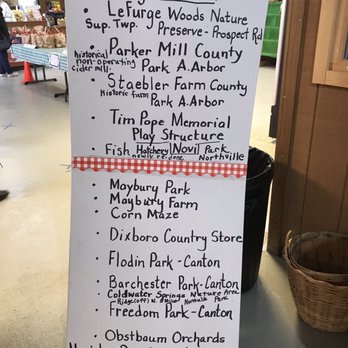 • LeFurge Woods Nature
Sup. Twp. Preserve - Prospect Rd
• Parker Mill County
Park A.Arbor
historical
non-operating
cider mill.
• Staebler Farm County
Historic farm Park A.Arbor
• Tim Pope Memorial
Play Structure
• Fish Hatchery Novi Park
newly re-done Northville
• Maybury Park
• Maybury Farm
• Corn Maze
• Dixboro Country Store
• Flodin Park - Canton
• Barchester Park - Canton
Coldwater Springs Nature Area
Northville Park
• Freedom Park - Canton
• Obstbaum Orchards